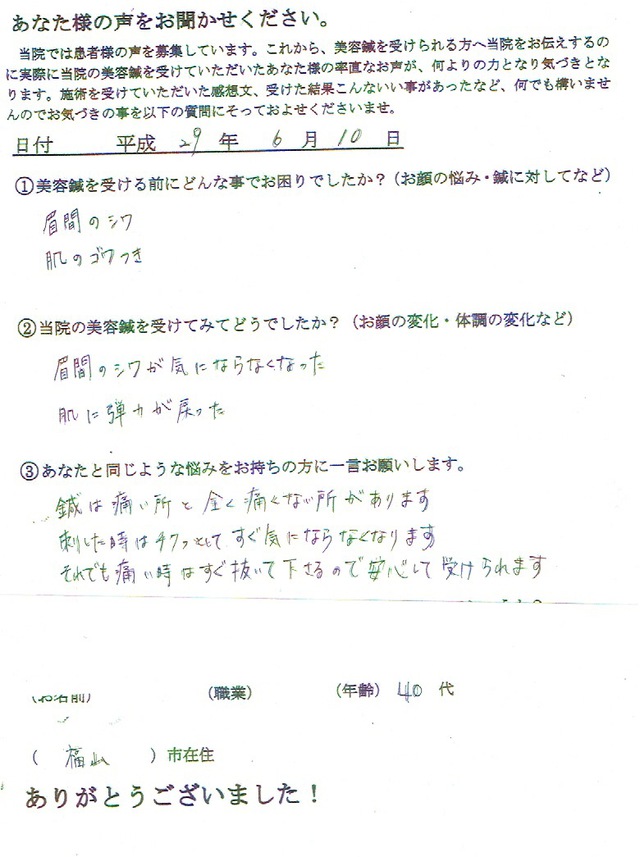 あなた様の声をお聞かせください。
当院では患者様の声を募集しています。これから、美容鍼を受けられる方へ当院をお伝えするの
に実際に当院の美容鍼を受けていただいたあなた様の率直なお声が、何よりの力となり気づきとな
ります。施術を受けていただいた感想文、受けた結果こんないい事があったなど、何でも構いませ
んのでお気づきの事を以下の質問にそっておよせくださいませ。
日付 平成 29 年 6 月 10 日
①美容鍼を受ける前にどんな事でお困りでしたか？（お顔の悩み・鍼に対してなど）
眉間のシワ
肌のゴワつき
②当院の美容鍼を受けてみてどうでしたか？（お顔の変化・体調の変化など）
眉間のシワが気にならなくなった
肌に弾力が戻った
③あなたと同じような悩みをお持ちの方に一言お願いします。
鍼は痛い所と全く痛くない所があります
刺した時はチクっとしてすぐ気にならなくなります
それでも痛い時はすぐ抜いて下さるので安心して受けられます
（お名前） （職業） （年齢） 40 代
（ 福山 ）市在住
ありがとうございました！